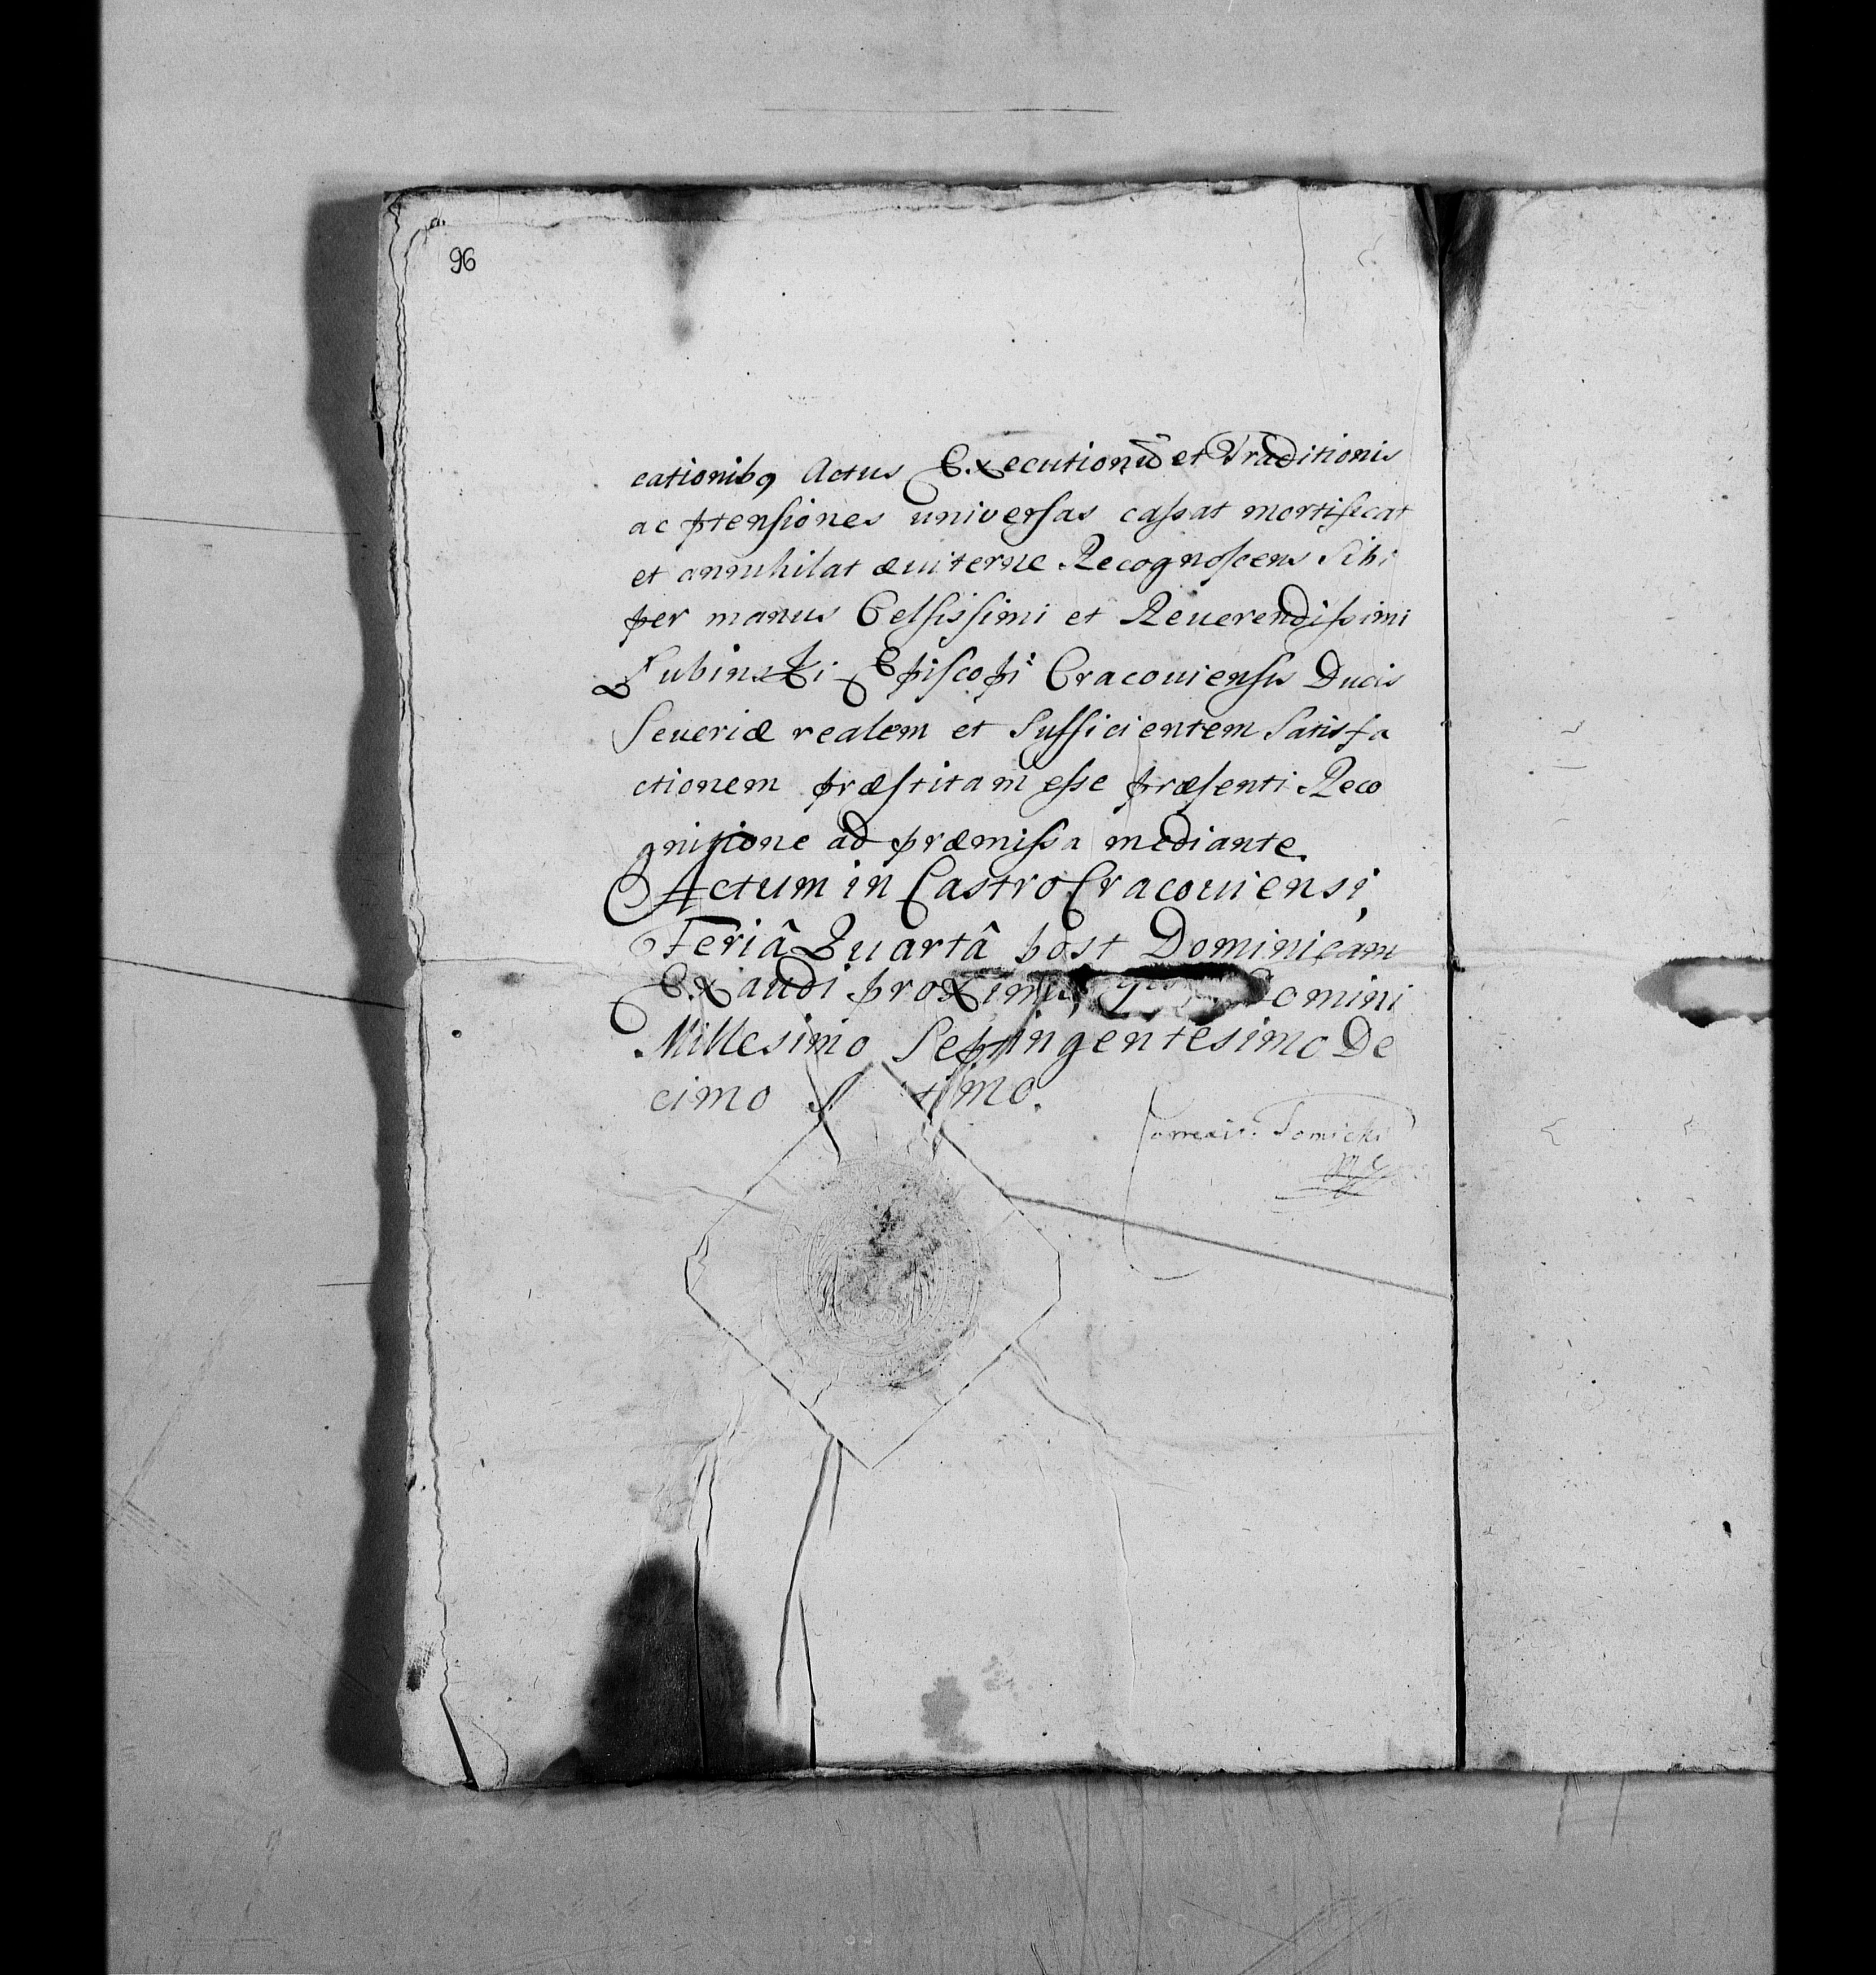 96
cationibꝯ Actus Executionũ et Traditionis
ac ptensiones universas cassat mortificat
et annuhilat æuiterne Recognoscens Sibi
per manus Celsissimi et Reuerendissimi
Lubinski Episcopi Cracouiensis Ducis
Seueriæ realem et Sufficientem Satisfa
ctionem præstitam esse præsenti Reco
gnitione ad præmissa mediante
Actum in Castro Cracouiensi,
Feriâ Quartâ post Dominicam
Exaudi proxima, Domini
Millesimo Septingentesimo De
cimo timo.
Correxit Tomicki